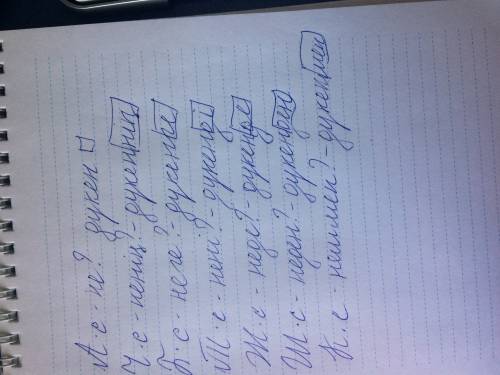 А.с - не? дукен
с - ненің? - дукеннің
Б.с - неге? - дукенге
Т.с - нені? - дукенді
Ж.с - неде? - дукенде
Ш.с - неден? - дукеннен
К.с - - дукенмен